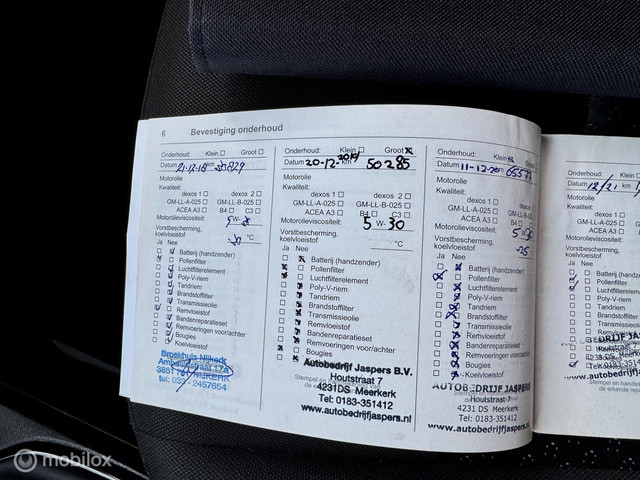 6 Bevestiging onderhoud
Onderhoud: Klein Groot
Datum 21-12-18 km
Motorolie
Kwaliteit:
dexos 1 dexos 2
GM-LL-A-025 GM-LL-B-025
ACEA A3 B4 C3
Motorolieviscositeit:
Vorstbescherming,
koelvloeistof °C
Ja Nee
Batterij (handzender)
Pollenfilter
Luchtfilterelement
Poly-V-riem
Tandriem
Brandstoffilter
Transmissieolie
Remvloeistof
Bandenreparatieset
Remvoeringen voor/achter
Bougies
Koelvloeistof
Broekhuis Nijkerk
Ambachtsstraat 17a
3861 NIJKERK
tel: 033-2457654
Onderhoud: Klein Groot
Datum 20-12-2019 km 50285
Motorolie
Kwaliteit:
dexos 1 dexos 2
GM-LL-A-025 GM-LL-B-025
ACEA A3 B4 C3
Motorolieviscositeit: 5 W-30
Vorstbescherming,
koelvloeistof °C
Ja Nee
Batterij (handzender)
Pollenfilter
Luchtfilterelement
Poly-V-riem
Tandriem
Brandstoffilter
Transmissieolie
Remvloeistof
Bandenreparatieset
Remvoeringen voor/achter
Bougies
Autobedrijf Jaspers B.V.
Houtstraat 7
4231DS Meerkerk
Tel: 0183-351412
www.autobedrijfjaspers.nl
Onderhoud: Klein Groot
Datum 11-12-20 km
Motorolie
Kwaliteit:
dexos 1 dexos 2
GM-LL-A-025 GM-LL-B-025
ACEA A3 B4 C3
Motorolieviscositeit: 5 W-30
Vorstbescherming,
koelvloeistof -25 °C
Ja Nee
Batterij (handzender)
Pollenfilter
Luchtfilterelement
Poly-V-riem
Tandriem
Brandstoffilter
Transmissieolie
Remvloeistof
Bandenreparatieset
Remvoeringen voor/achter
Bougies
Koelvloeistof
AUTOBEDRIJF JASPERS
Houtstraat 7
4231 DS Meerkerk
Tel: 0183-351412
www.autobedrijfjaspers.nl
Onderhoud: Klein
Datum 12/21 km
Motorolie
Kwaliteit:
dexos 1
GM-LL-A-025
ACEA A3
Motorolieviscositeit:
Vorstbescherming,
koelvloeistof
Ja Nee
Batterij
Pollenfilter
Luchtfilterelement
Poly-V-riem
Tandriem
Brandstoffilter
Transmissieolie
Remvloeistof
Bandenreparatie
Remvoeringen
BEDRIJF JAS
Houtstraat
Meerkerk
Tel: 0183-35
www.autobedrijf
mobilox